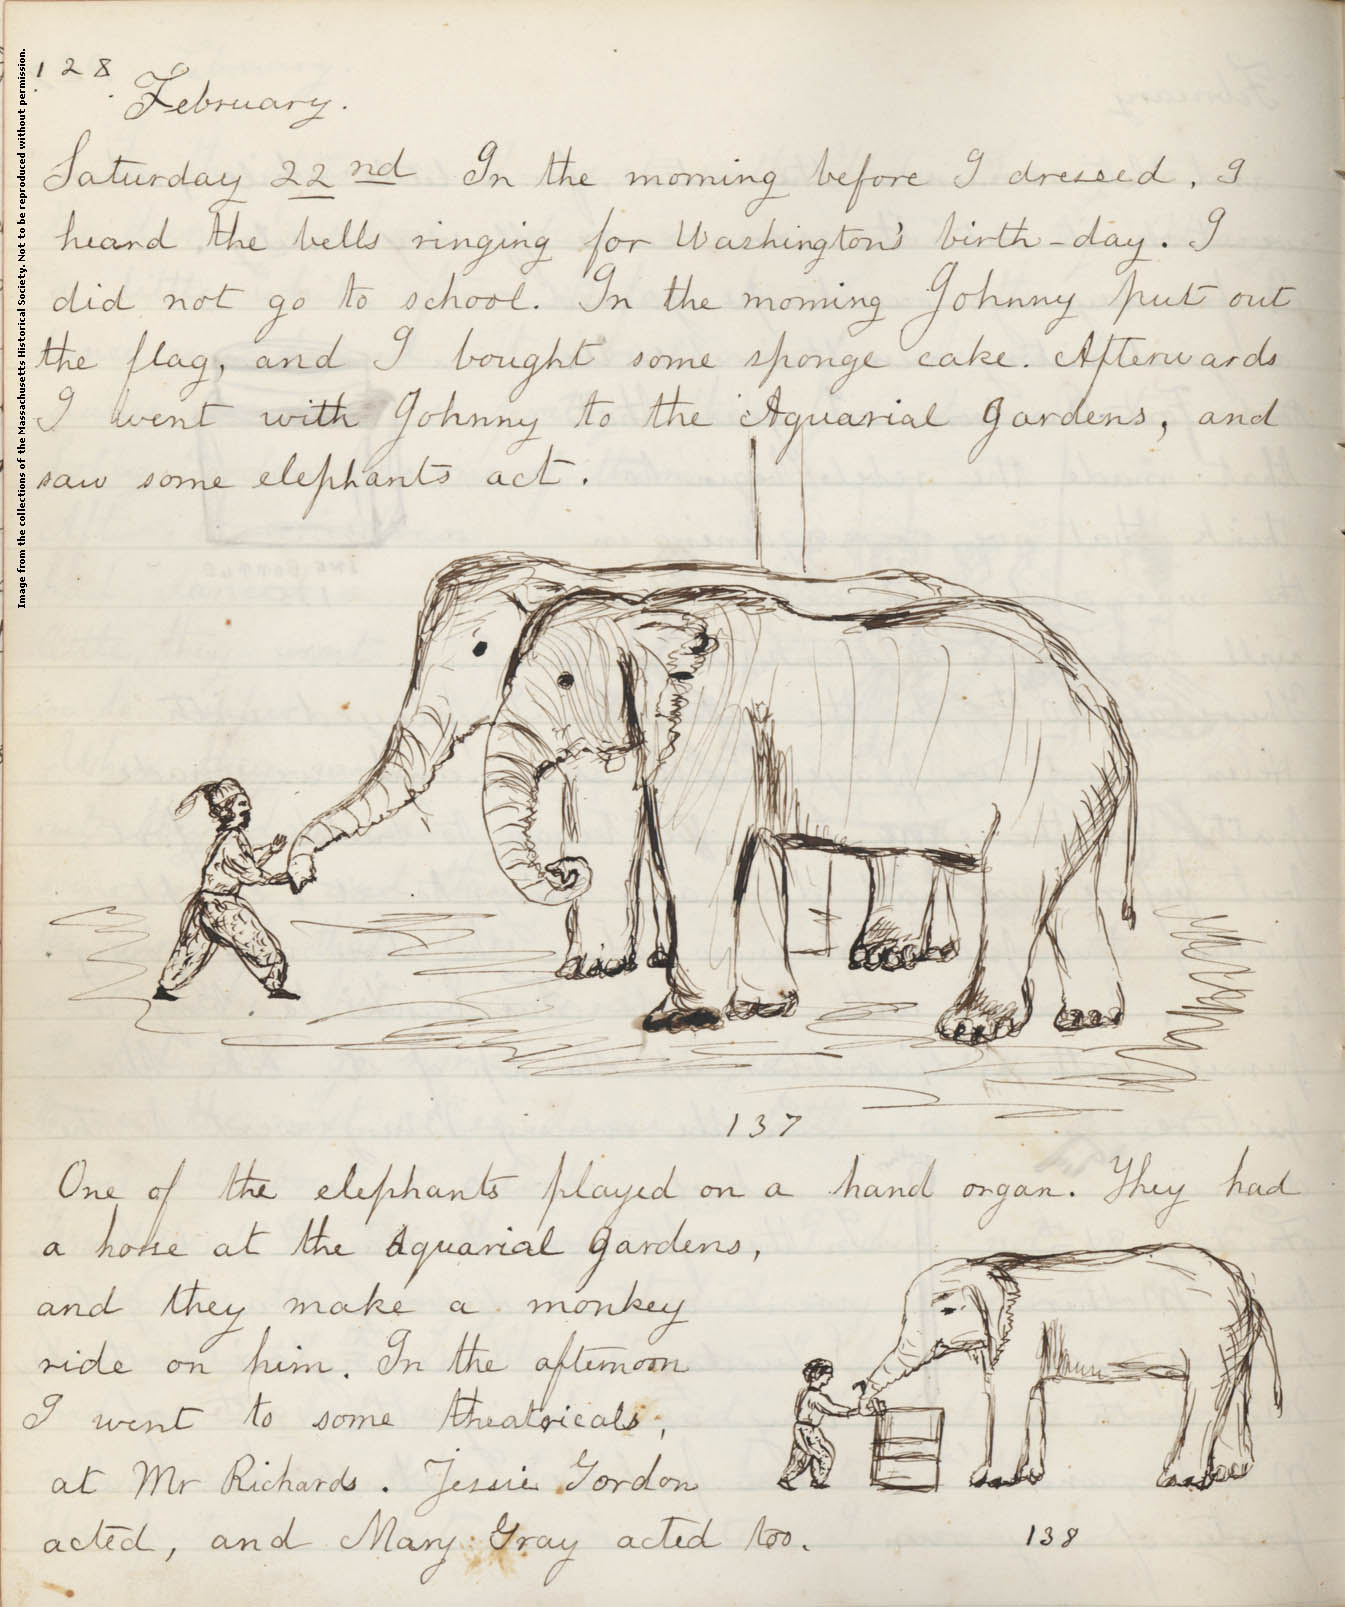 128
February.
Saturday 22nd In the morning before I dressed, I
heard the bells ringing for Washington's birth-day. I
did not go to school. In the morning Johnny put out
the flag, and I bought some sponge cake. Afterwards
I went with Johnny to the Aquarial Gardens, and
saw some elephants act.
137
One of the elephants played on a hand organ. They had
a horse at the Aquarial Gardens,
and they make a monkey
ride on him. In the afternoon
I went to some theatricals,
at Mr Richards. Jessie Gordon
acted, and Mary Gray acted too.
138
Image from the collections of the Massachusetts Historical Society. Not to be reproduced without permission.